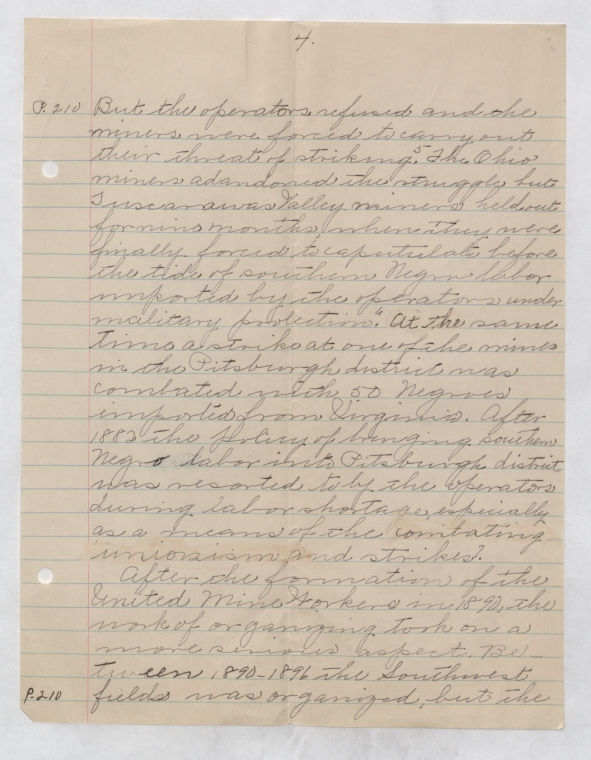 4.
P. 210 But the operators refused and the
miners were forced to carry out
their threat of striking.5 The Ohio
miners adandoned the struggle but
Tuscarawas Valley miners held out
for nine months, when they were
finally forced to caputulate before
the tide of southern Negro labor
imported by the operators under
military protection.6 At the same
time a strike at one of the mines
in the Pitsburgh district was
combated with 50 Negroes
imported from Virginia. After
1882 the policy of bringing southern
Negro labor into Pitsburgh district
was resorted to by the operators
during labor shortage, especially
as a means of the combating
unionism and strikes.7
After the formation of the
United Mine Workers in 1890, the
work of organizing took on a
more serious aspect. Be-
tween 1890-1896 the Southwest
P. 210 fields was organized, but the